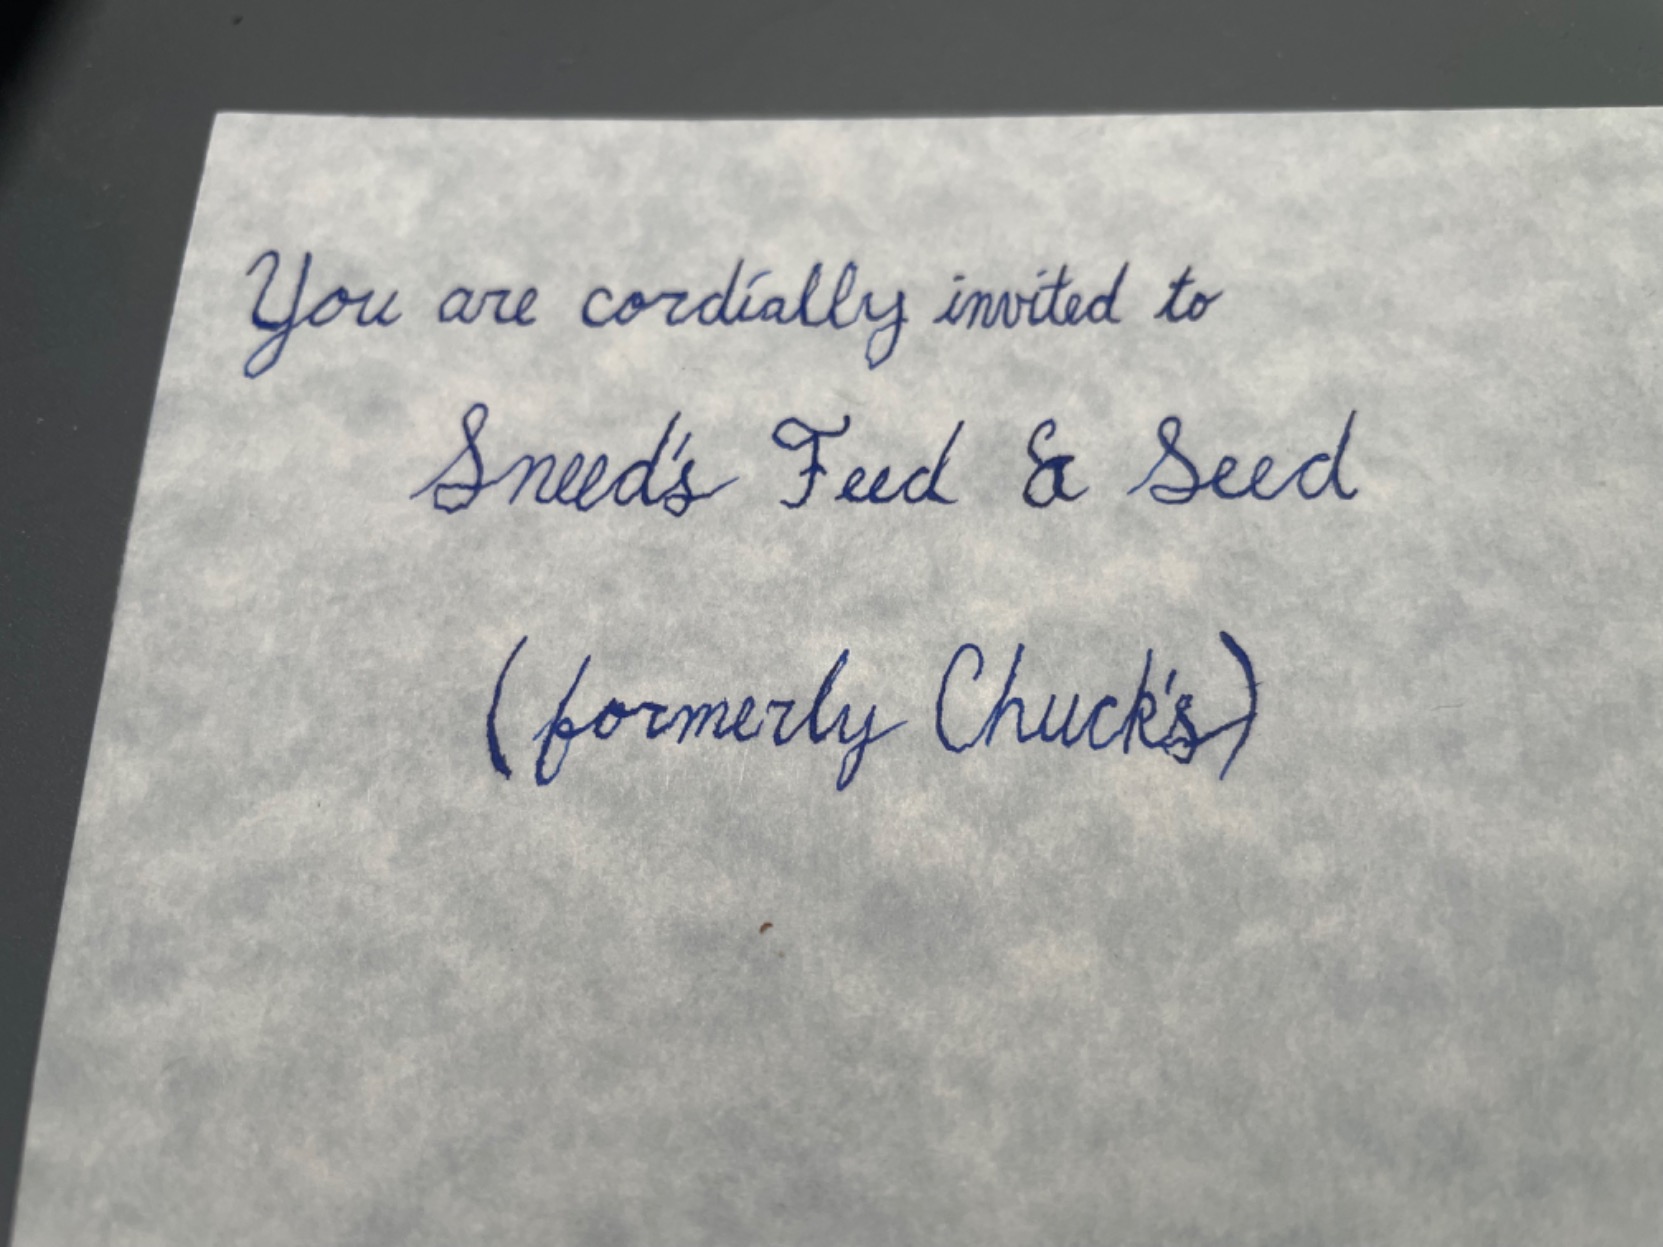 You are cordially invited to
Sneed's Feed & Seed
(formerly Chuck's)